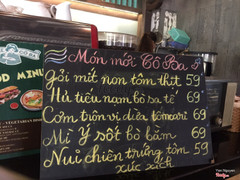 Món mới Cô Ba
Gỏi mít non tôm thịt 59
Hủ tiếu nạm bò sa tế 69
Cơm tiên vi dừa tôm cari 69
Mì Ý sốt bò bằm 69
Nui chiên trứng tôm xúc xích 59
OD MINU